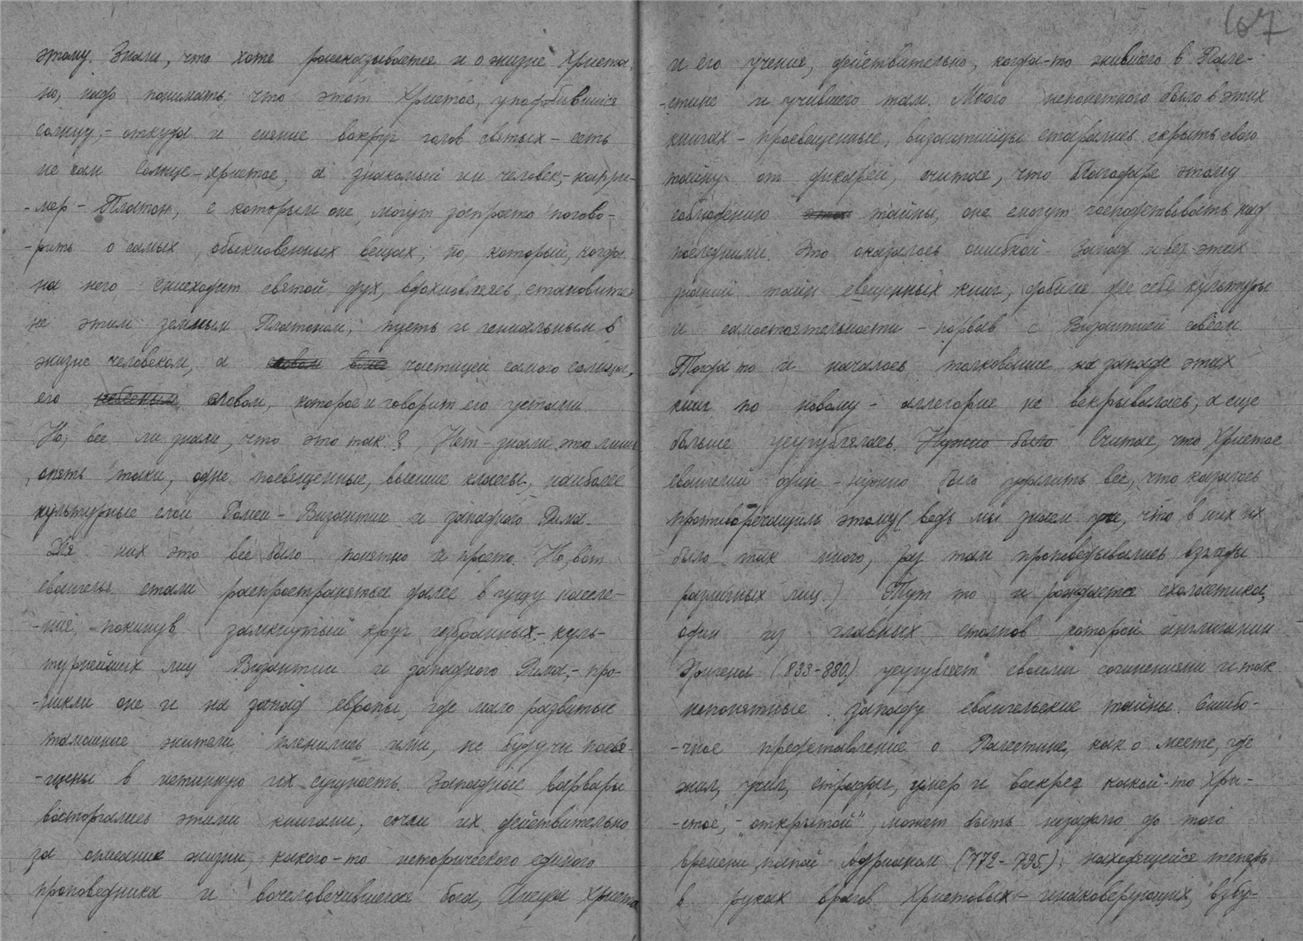 этому. Знали, что хотя рассказывается и о жизни Христа,
но, надо понимать, что этот Христос, уподобившись
солнцу, - откуда и сияние вокруг голов святых - есть
не сам Солнце-Христос, а знакомый им человек, - напри-
-мер - Платон, с которым они, могут запросто погово-
-рить о самых, обыкновенных вещах, но, который, когда
на него снисходит святой дух, вдохновляясь, становится
не этим земным Платоном, пусть и гениальным в
жизни человеком, а частицей самого солнца,
его словом, которое и говорит его устами
Но, все ли знали, что это так? Нет - знали это лишь
опять таки, одни посвященные, высшие классы, наиболее
культурные слои Ромеи - Византии и западного Рима.
Для них это все было понятно и просто. Но, вот
евангелья стали распространяться далее в гущу населе-
-ния, покинув „замкнутый" круг избранных - куль-
турнейших лиц Византии и западного Рима, - про-
-никли они и на запад европы, где мало развитые
тамошние жители пленились ими, не будучи посвя-
-щены в истинную их сущность. Западные варвары
восторгались этими книгами, сочли их действительно
за описание жизни, какого-то исторического единого
проповедника и вочеловечившегося бога, Иисуса Христа
167
и его учение, действительно, когда-то жившего в Пале-
-стине и учившего там. Много непонятного было в этих
книгах - просвещенные, византийцы старались скрыть свою
тайну от дикарей, считая, что благодаря этому
соблюдению тайны, они смогут господствовать над
последними. Это оказалось ошибкой. Запад и без этих
знаний тайн священных книг, добился для себя культуры
и самостоятельности - порвав с Византией совсем.
Тогда то и началось толкование на западе этих
книг по новому - аллегория не вскрывалась, а еще
больше усугублялась. Нужно было Считая, что Христос
евангелий один - нужно было удалить все, что казалось
противоречащим этому (ведь мы знаем уже, что в них их
было так много, раз там проповедывались взгляды
различных лиц.) Тут то и рождается схоластика,
один из главных столпов которой англичанин
Эригена (833-880.) „усугубляет" своими сочинениями и так
непонятные западу евангельские тайны. Ошибо-
-чное представление о Палестине, как о месте, где
жил, учил, страдал, умер и воскрес какой-то Хри-
-стос, - „открытой", может быть незадолго до того
времени, папой Адрианом (772-795.), находящейся теперь
в руках врагов Христовых - инаковерующих, взбу-